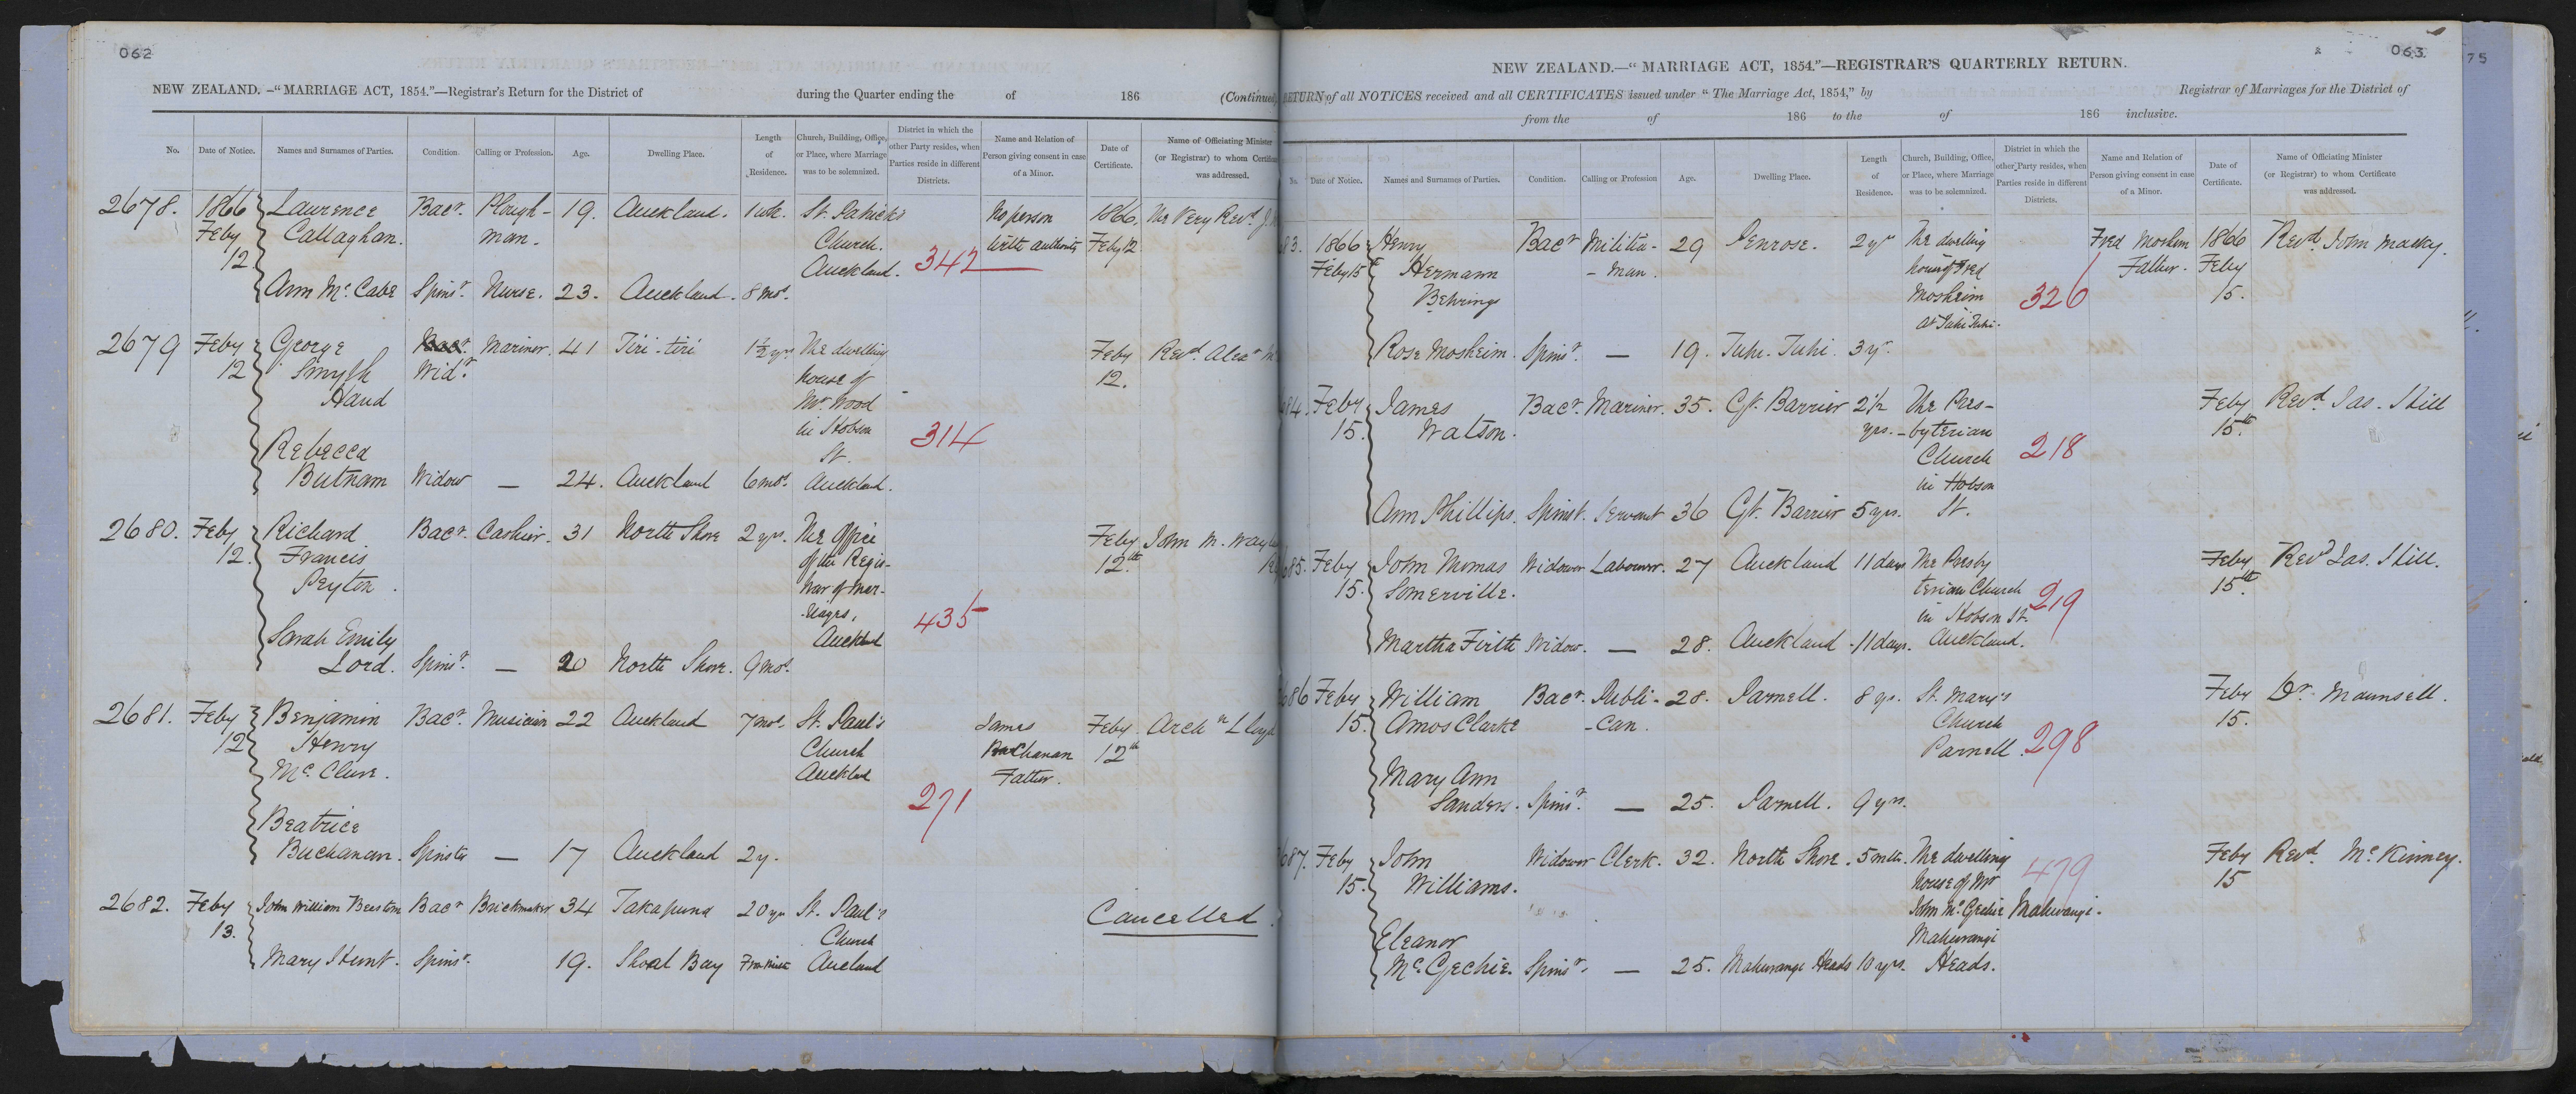 062
NEW ZEALAND. –“MARRIAGE ACT, 1854.”—Registrar's Return for the District of during the Quarter ending the of 186 (Continued
No. Date of Notice. Names and Surnames of Parties. Condition. Calling or Profession. Age. Dwelling Place. Length of Residence. Church, Building, Office, or Place, where Marriage was to be solemnized. District in which the other Party resides, when Parties reside in different Districts. Name and Relation of Person giving consent in case of a Minor. Date of Certificate. Name of Officiating Minister (or Registrar) to whom Certificate was addressed.
2678. 1866 Lawrence Bacr. Plough- 19. Auckland. 1 wk. St. Patrick's No person 1866 The Very Revd. J.
Feby Callaghan. man. Church. with authority Feby 12
12 Auckland. 342
Ann Mc. Cabe Spinr. Nurse. 23. Auckland. 8 mos.
2679 Feby George Bacr. Mariner. 41 Tiri-tiri 1½ yrs The dwelling Feby Revd. Alexr
12 Smyth Widr. house of 12.
Hand Mr. Wood
in Hobson 314
Rebecca St.
Butnam Widow — 24. Auckland 6 mos. Auckland.
2680. Feby Richard Bacr. Cashier. 31 North Shore 2 yrs. The Office Feby John M.
12. Francis of the Regis- 12th
Peyton. trar of Mar-
riages, 435
Sarah Emily Auckland
Lord. Spinr. — 20 North Shore. 9 mos.
2681. Feby Benjamin Bacr. Musician 22 Auckland 7 mos. St. Paul's James Feby Archn Lloyd
12 Henry Church Buchanan 12th
Mc. Clure. Auckland Father.
271
Beatrice
Buchanan. Spinster — 17 Auckland 2 y.
2682. Feby John William Beeston Bacr Brickmaker 34 Takapuna 20 yrs St. Paul's Cancelled.
13. Church
Mary Hunt. Spinr. 19. Shoal Bay Auckland
063
75
NEW ZEALAND.—“MARRIAGE ACT, 1854.”—REGISTRAR'S QUARTERLY RETURN.
RETURN of all NOTICES received and all CERTIFICATES issued under “The Marriage Act, 1854,” by Registrar of Marriages for the District of
from the of 186 to the of 186 inclusive.
No. Date of Notice. Names and Surnames of Parties. Condition. Calling or Profession Age. Dwelling Place. Length of Residence. Church, Building, Office, or Place, where Marriage was to be solemnized. District in which the other Party resides, when Parties reside in different Districts. Name and Relation of Person giving consent in case of a Minor. Date of Certificate. Name of Officiating Minister (or Registrar) to whom Certificate was addressed.
83. 1866 Henry Bacr Militia- 29 Penrose. 2 yrs The dwelling Fred Mosheim 1866 Revd. John Macky.
Feby 15 Hermann -man. house of Fred Father. Feby
Behrings Mosheim 326 15.
at Tuhi Tuhi.
Rose Mosheim. Spinr. — 19. Tuhi-Tuhi. 3 yrs.
84. Feby James Bacr. Mariner. 35. Gt. Barrier 2½ The Pres- Feby Revd. Jas. Hill
15. Watson. yrs. byterian 15th
Church 218
in Hobson
Ann Phillips. Spinst. Servant 36 Gt. Barrier 5 yrs. St.
685. Feby John Thomas Widower Labourer. 27 Auckland 11 days The Presby Feby Revd Jas. Hill.
15. Somerville. terian Church 219 15th
in Hobson St.
Martha Firth Widow. — 28. Auckland 11 days. Auckland.
686 Feby William Bacr. Publi- 28. Parnell. 8 yrs. St. Mary's Feby Dr. Maunsell.
15. Amos Clarke -can. Church 15.
Parnell. 298
Mary Ann
Sanders. Spinr. — 25. Parnell. 9 yrs.
687. Feby John Widower Clerk. 32. North Shore. 5 mths. The dwelling 479 Feby Revd. Mc. Kinney.
15. Williams. house of Mr 15
John Mc. Gechie Mahurangi.
Eleanor Mahurangi
Mc. Gechie. Spinr. — 25. Mahurangi Heads 10 yrs. Heads.